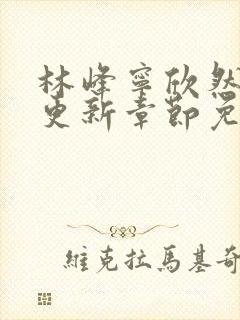 林峰寧欣然
更新章節免
維克拉馬基奇